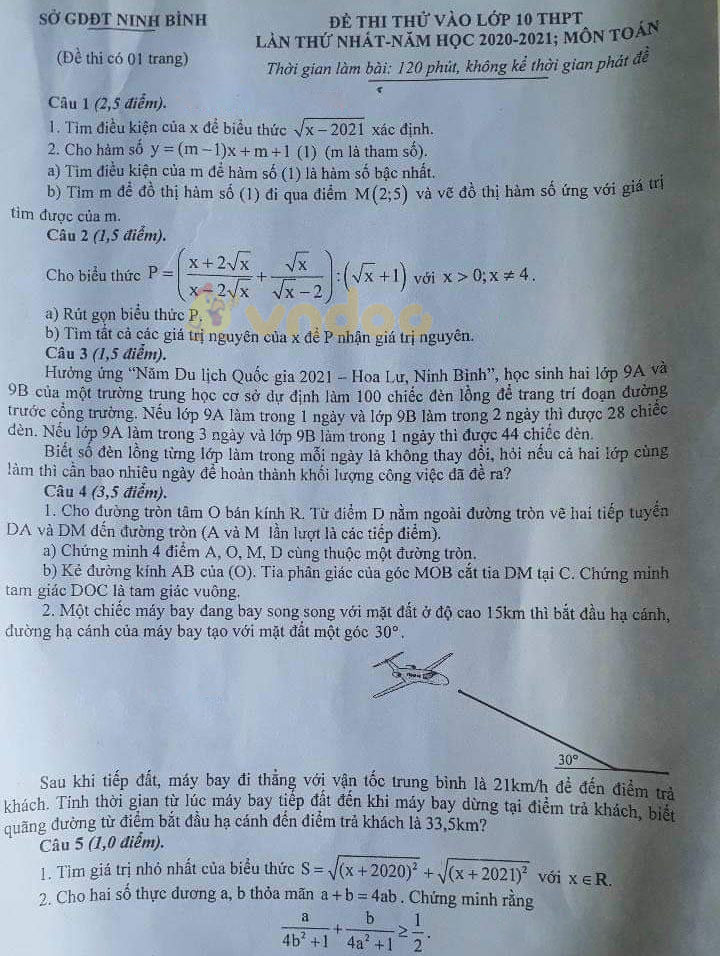 SỞ GDĐT NINH BÌNH
ĐỀ THI THỬ VÀO LỚP 10 THPT
LẦN THỨ NHẤT-NĂM HỌC 2020-2021; MÔN TOÁN
(Đề thi có 01 trang)
Thời gian làm bài: 120 phút, không kể thời gian phát đề
Câu 1 (2,5 điểm).
1. Tìm điều kiện của x để biểu thức √(x − 2021) xác định.
2. Cho hàm số y = (m −1)x + m + 1 (1) (m là tham số).
a) Tìm điều kiện của m để hàm số (1) là hàm số bậc nhất.
b) Tìm m để đồ thị hàm số (1) đi qua điểm M(2;5) và vẽ đồ thị hàm số ứng với giá trị
tìm được của m.
Câu 2 (1,5 điểm).
Cho biểu thức P = ((x + 2√x)/(x − 2√x) + √x/(√x − 2)) : (√x + 1) với x > 0; x ≠ 4.
a) Rút gọn biểu thức P.
b) Tìm tất cả các giá trị nguyên của x để P nhận giá trị nguyên.
vndoc
Câu 3 (1,5 điểm).
Hưởng ứng “Năm Du lịch Quốc gia 2021 – Hoa Lư, Ninh Bình”, học sinh hai lớp 9A và
9B của một trường trung học cơ sở dự định làm 100 chiếc đèn lồng để trang trí đoạn đường
trước cổng trường. Nếu lớp 9A làm trong 1 ngày và lớp 9B làm trong 2 ngày thì được 28 chiếc
đèn. Nếu lớp 9A làm trong 3 ngày và lớp 9B làm trong 1 ngày thì được 44 chiếc đèn.
Biết số đèn lồng từng lớp làm trong mỗi ngày là không thay đổi, hỏi nếu cả hai lớp cùng
làm thì cần bao nhiêu ngày để hoàn thành khối lượng công việc đã đề ra?
Câu 4 (3,5 điểm).
1. Cho đường tròn tâm O bán kính R. Từ điểm D nằm ngoài đường tròn vẽ hai tiếp tuyến
DA và DM đến đường tròn (A và M lần lượt là các tiếp điểm).
a) Chứng minh 4 điểm A, O, M, D cùng thuộc một đường tròn.
b) Kẻ đường kính AB của (O). Tia phân giác của góc MOB cắt tia DM tại C. Chứng minh
tam giác DOC là tam giác vuông.
2. Một chiếc máy bay đang bay song song với mặt đất ở độ cao 15km thì bắt đầu hạ cánh,
đường hạ cánh của máy bay tạo với mặt đất một góc 30°.
30°
Sau khi tiếp đất, máy bay đi thẳng với vận tốc trung bình là 21km/h để đến điểm trả
khách. Tính thời gian từ lúc máy bay tiếp đất đến khi máy bay dừng tại điểm trả khách, biết
quãng đường từ điểm bắt đầu hạ cánh đến điểm trả khách là 33,5km?
Câu 5 (1,0 điểm).
1. Tìm giá trị nhỏ nhất của biểu thức S = √((x + 2020)²) + √((x + 2021)²) với x ∈ R.
2. Cho hai số thực dương a, b thỏa mãn a + b = 4ab. Chứng minh rằng
a/(4b² + 1) + b/(4a² + 1) ≥ 1/2.